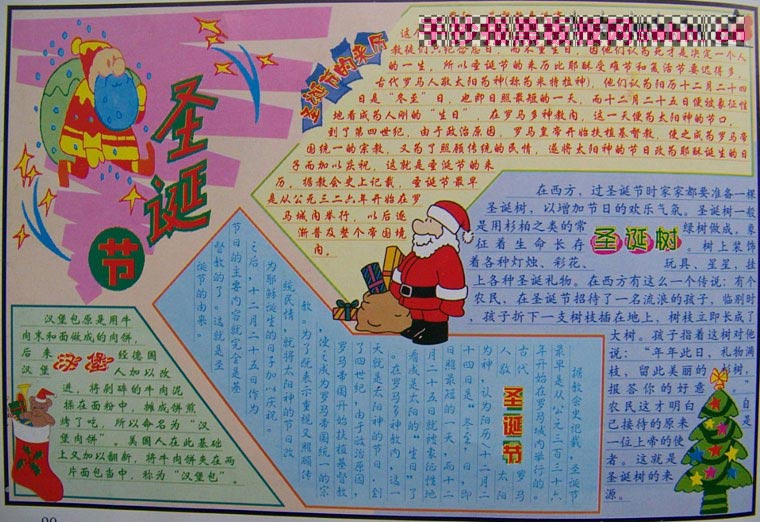 圣诞节
圣诞节的来历
的一生，所以圣诞节的来历比耶酥受难节和复活节要迟得多，
古代罗马人敬太阳为神(称为米特拉神)，他们认为阳历十二月二十四
日是“冬至”日，也即日照最短的一天，而十二月二十五日便被象征性
地看成为人刚的“生日”，在罗马多种教内，这一天便为太阳神的节日，
到了第四世纪，由于政治原因，罗马皇帝开始扶植基督教，使之成为罗马帝
国统一的宗教，又为了照顾传统的民情，遂将太阳神的节日改为耶酥诞生的日
子而加以庆祝，这就是圣诞节的来
历，据教会史上记载，圣诞节最早
是从公元三二六年开始在罗
马城内举行，以后逐
渐普及整个帝国境
内。
在西方，过圣诞节时家家都要准备一棵
圣诞树，以增加节日的欢乐气氛。圣诞树一般
是用杉柏之类的常绿树做成，象
征着生命长存
圣诞树
。树上装饰
着各种灯烛、彩花、玩具、星星，挂
上各种圣诞礼物。在西方有这么一个传说：有个
农民，在圣诞节招待了一名流浪的孩子，临别时
，孩子折下一支树枝插在地上，树枝立即长成了
大树。孩子指着这树对他
说：“年年此日，礼物满
枝，留此美丽的树，
报答你的好意。”
农民这才明白自
己接待的原来是
一位上帝的使
者。这就是
圣诞树的来
源。
汉堡包原是用牛
肉末和面做成的肉饼，
后来
汉堡
经德国
汉堡人加以改
进，将剁碎的牛肉泥
揉在面粉中，摊成饼煎
烤了吃，所以命名为“汉
堡肉饼”。美国人在此基础
上又加以翻新，将牛肉饼夹在两
片面包当中，称为“汉堡包”。
圣诞节
据教会史记载，圣诞节
最早是从公元三百三十六
年开始在罗马城内举行的。
古代罗马
人敬太阳
为神，认为阳历十二月二
十四日是“冬至”日，即
日照最短的一天，而十二
月二十五日就被象征性地
看成是太阳的“生日”了
。在罗马多种教内，这一
天就是太阳神的节日，到
了四世纪，由于政治原因，
罗马帝国开始扶植基督教
，使之成为罗马帝国统一的宗
教。为了既表示重视又照顾传
统民情，就将太阳神的节日改
为耶稣诞生的日子加以庆祝。
之后，十二月二十五日作为
节日的主要内容就完全是基
督教的了。这就是圣
诞节的由来。